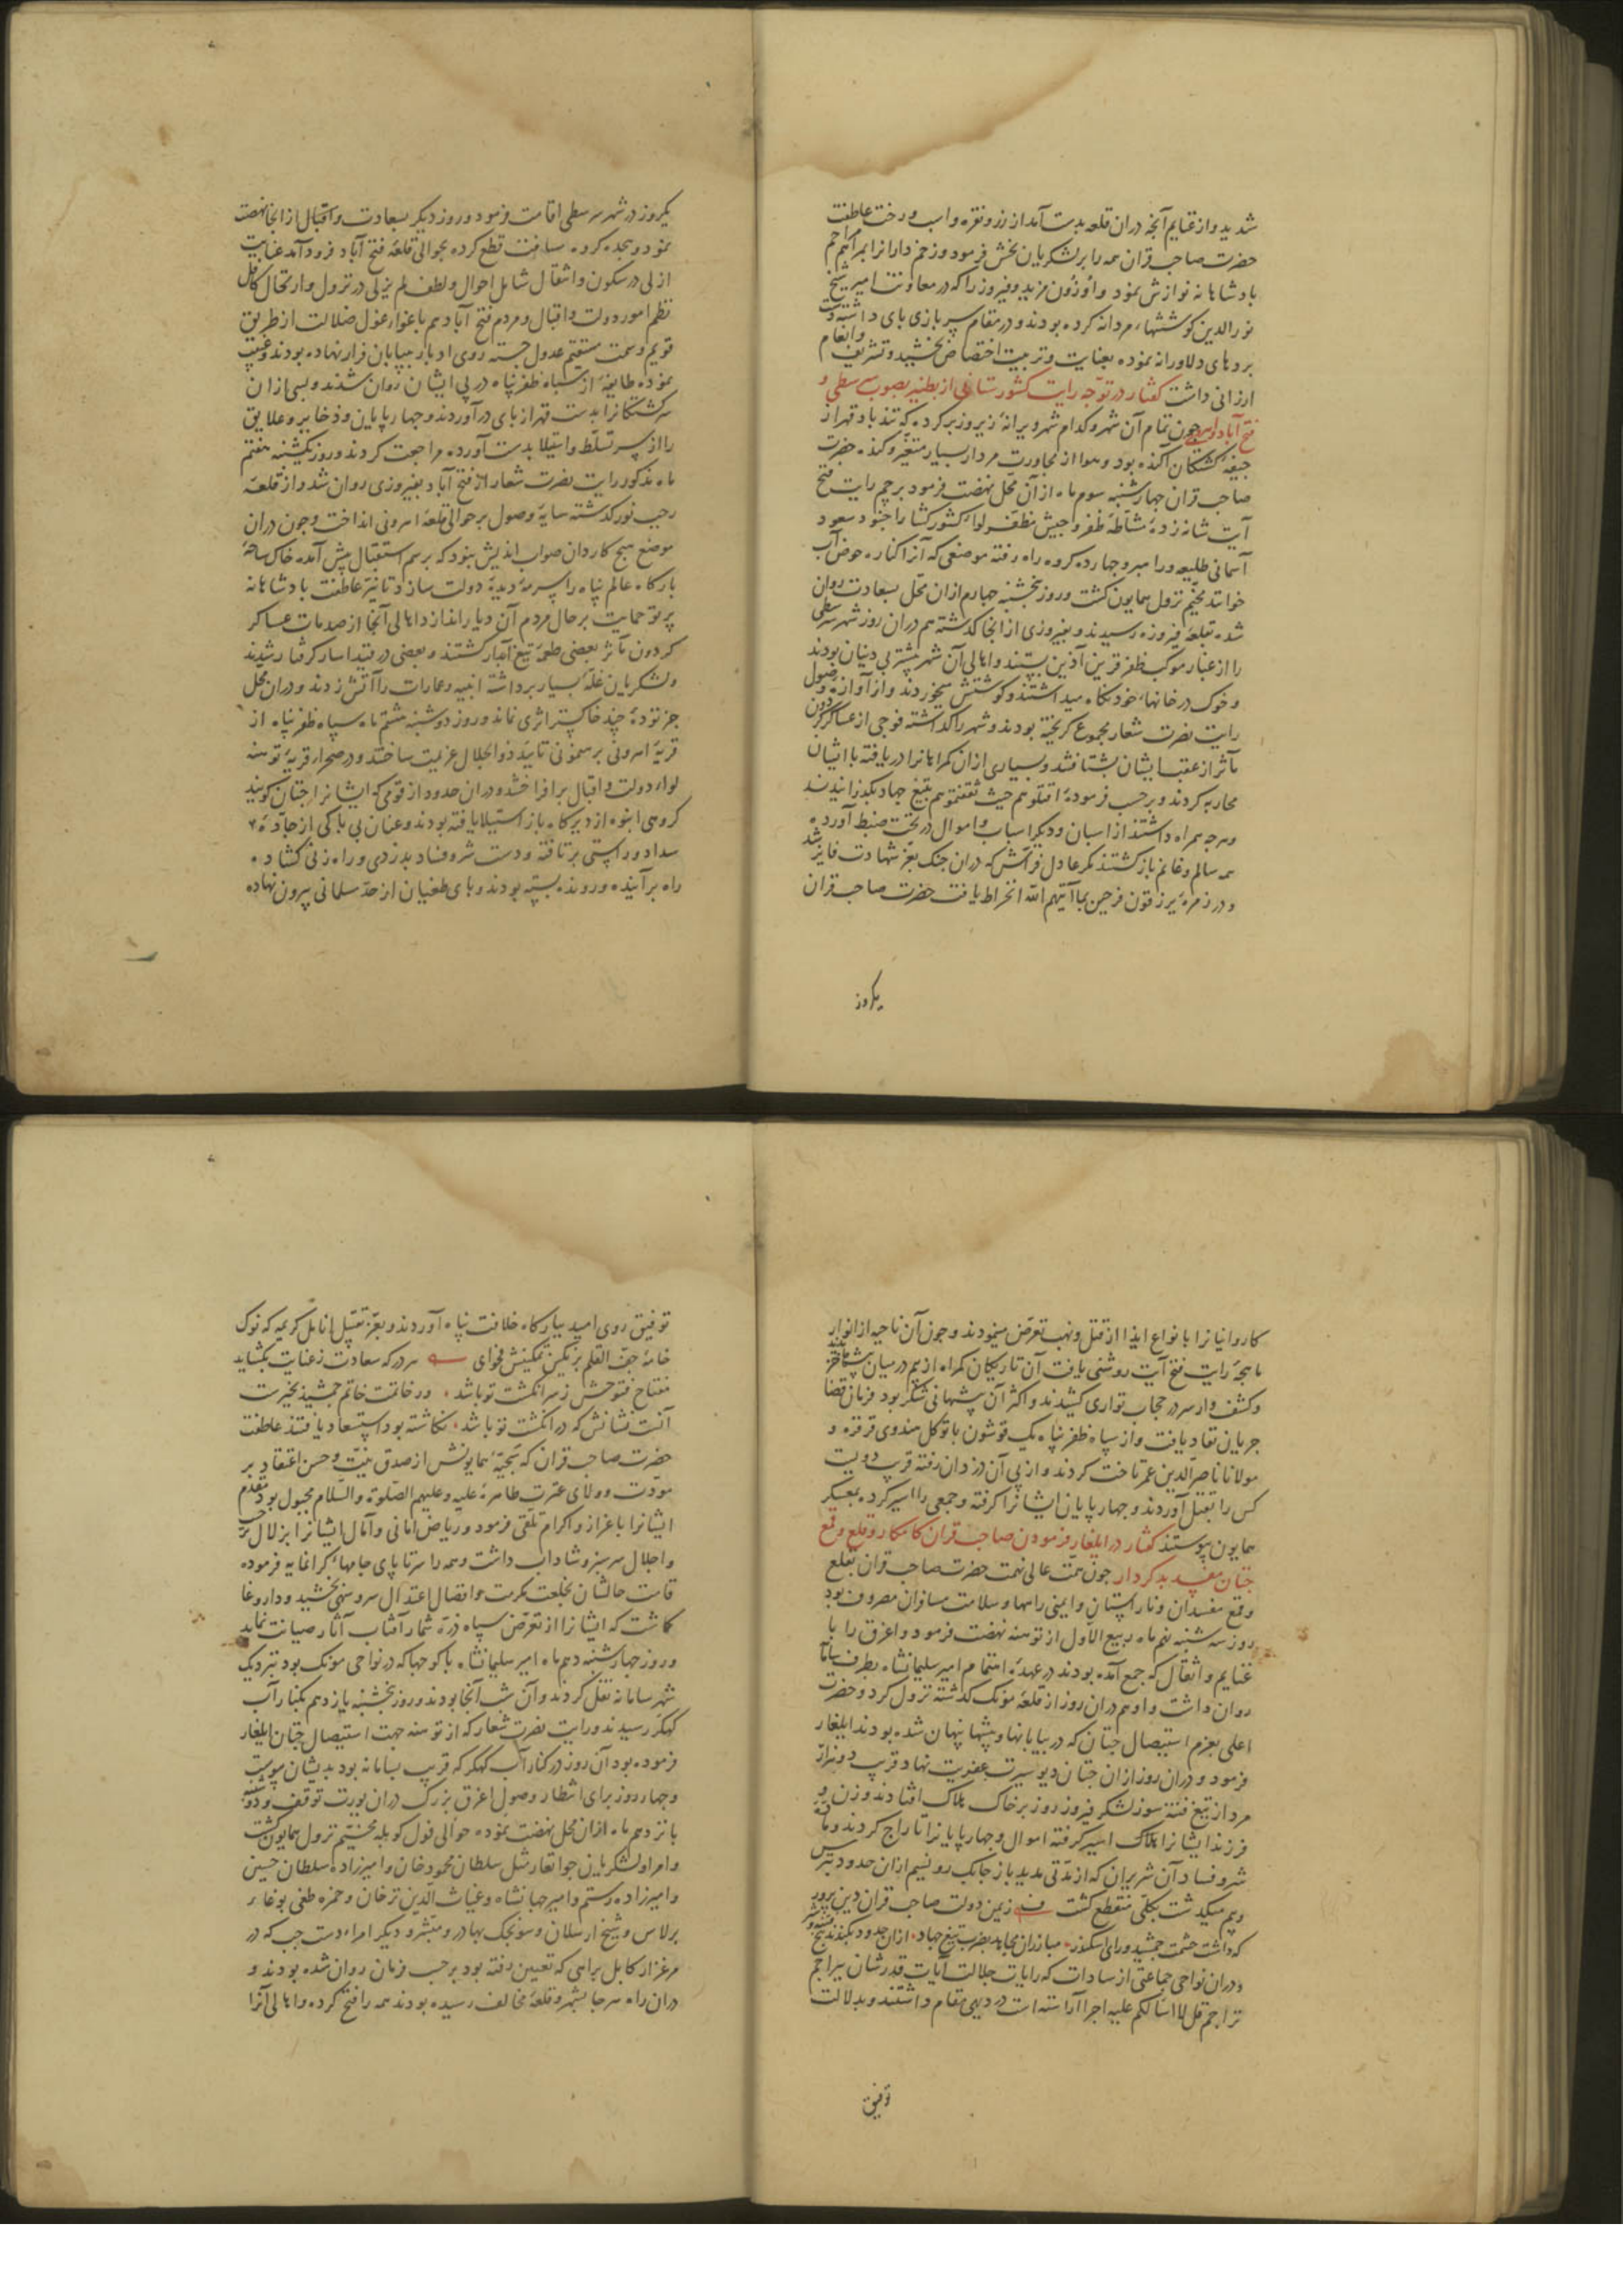 شدید و از غنایم آنچه دران قلعه بدست آمد از زر و نقره و اسب و رخت عاطفت
حضرت صاحب قران همه را بر لشکریان بخش فرمود و زخم دارانرا بمراهم مراحم
بادشاهانه نوازش نمود و اوزون مزید و فیروز را که در معاونت امیر شیخ
نورالدین کوششهاء مردانه کرده بودند و در مقام سربازی بای داشته و دست
بردهای دلاورانه نموده بعنایت و تربیت اختصاص بخشید و تشریف و انعام
ارزانی داشت گفتار در توجه رایت کشورستانی از بطنیر بصوب سرسطی و
فتح آباد و اهرونی چون تمام آن شهر و کدام شهر ویرانهٔ زیر و زبر کرده که تندباد قهر از
جیفهٔ کشتکان آکنده بود و هوا از مجاورت مردار بسیار متغیر و کنده حضرت
صاحب قران چهارشنبه سوم ماه از آن محل نهضت فرمود پرچم رایت فتح
آیت شانه زدهٔ مشاطهٔ ظفر و جیش مظفر لواء کشورکشا را جنود سعود
آسمانی طلیعه و راهبر و چهارده کروه راه رفته موضعی که آنرا کناره حوض آب
خوانند مخیم نزول همایون کشت و روز بنجشنبه چهارم ازان محل بسعادت روان
شده بقلعهٔ فیروزه رسیدند و بفیروزی از انجا کذشته هم دران روز شهر سرسطی
را از غبار موکب ظفر قرین آذین بستند و اهالی آن شهر بیشتر بی دینان بودند
و خوک در خانهاء خود نکاه میداشتند و کوشتش میخوردند و از آوازهٔ وصول
رایت نصرت شعار مجموع کریخته بودند و شهر را کذاشته فوجی از عساکر کردون
مآثر از عقب ایشان بشتافتند و بسیاری ازان کمراهانرا دریافته با ایشان
محاربه کردند و بر حسب فرمودهٔ اقتلوهم حیث ثقفتموهم بتیغ جهاد بکذرانیدند
و هرچه همراه داشتند از اسبان و دیکر اسباب و اموال در تحت ضبط آورده
همه سالم و غانم بازکشتند مکر عادل فراش که دران جنک بعز شهادت فایز شد
و در زمرهٔ یرزقون فرحین بما آتیهم الله انخراط یافت حضرت صاحب قران
یکروز
یکروز در شهر سرسطی اقامت فرمود و روز دیکر بسعادت و اقبال از انجا نهضت
نمود و هجده کروه مسافت قطع کرده بحوالی قلعهٔ فتح آباد فرود آمد عنایت
ازلی در سکون و انتقال شامل احوال و لطف لم یزلی در نزول و ارتحال کافل
نظم امور دولت و اقبال و مردم فتح آباد هم باغواء غول ضلالت از طریق
قویم و سمت مستقیم عدول جسته روی ادبار ببیابان فرار نهاده بودند و غیبت
نموده طایفهٔ از سباه ظفرپناه در پی ایشان روان شدند و بسی ازان
سرکشتکانرا بدست قهر از بای درآوردند و چهارپایان و ذخایر و علایق
را از سر تسلط و استیلا بدست آورده مراجعت کردند و روز یکشنبه هفتم
ماه مذکور رایت نصرت شعار از فتح آباد بفیروزی روان شد و از قلعهٔ
رجب نور کذشته سایهٔ وصول بر حوالی قلعهٔ اهرونی انداخت و چون دران
موضع هیچ کاردان صواب اندیش بنود که برسم استقبال پیش آمده خاک ساحهٔ
بارکاه عالم پناه را سرمهٔ دیدهٔ دولت سازد تا نیر عاطفت بادشاهانه
پرتو حمایت بر حال مردم آن دیار اندازد اهالی آنجا از صدمات عساکر
کردون مآثر بعضی طعمهٔ تیغ آبدار کشتند و بعضی در قید اسار کرفتار شدند
و لشکریان غلهٔ بسیار برداشته ابنیه و عمارات را آتش زدند و دران محل
جز تودهٔ چند خاکستر اثری نماند و روز دوشنبه هشتم ماه سپاه ظفرپناه از
قریهٔ اهرونی برهنمونی تایید ذوالجلال عزیمت ساختند و در صحراء قریهٔ توهنه
لواء دولت و اقبال برافراختند و دران حدود از قومی که ایشانرا جتان کویند
کروهی انبوه از دیرکاه باز استیلا یافته بودند و عنان بی باکی از جادهٔ
سداد و راستی برتافته و دست شر و فساد بدزدی و راه زنی کشاده
راه بر آینده و رونده بسته بودند و بای طغیان از حد مسلمانی بیرون نهاده
کاروانیانرا بانواع ایذا از قتل و نهب تعرض مینمودند و چون آن ناحیه از انوار
ماهچهٔ رایت فتح آیت روشنی یافت آن تاریکان کمراه از بیم در میان بیشها خزیدند
و کشف وار سر در حجاب تواری کشیدند و اکثر آن بیشها نی شکر بود فرمان قضا
جریان نفاد یافت و از سپاه ظفرپناه یک قوشون با توکل هندوی قرقره و
مولانا ناصرالدین عمر تاخت کردند و از پی آن دزدان رفته قرب دویست
کس را بقتل آوردند و چهارپایان ایشانرا کرفته و جمعی را اسیر کرده بمعسکر
همایون پیوستند گفتار در ایلغار فرمودن صاحب قران کامکار و قلع و قمع
جتان مفسد بدکردار چون همت عالی نهمت حضرت صاحب قران بقلع
و قمع مفسدان و ناراستان و ایمنی راهها و سلامت مسافران مصروف بود
روز سه شنبه نهم ماه ربیع الاول از توهنه نهضت فرمود و اغرق را با
غنایم و اثقال که جمع آمده بودند در عهدهٔ اهتمام امیر سلیمانشاه بطرف سامانه
روان داشت و او هم دران روز از قلعهٔ مونک کذشته نزول کرد و حضرت
اعلی بعزم استیصال جتان که در بیابانها و بیشها پنهان شده بودند ایلغار
فرمود و دران روز ازان جتان دیو سیرت عفریت نهاد قریب دو هزار
مرد از تیغ فتنه سوز لشکر فیروز روز بر خاک هلاک افتادند و زن و
فرزند ایشانرا اسیر کرفته اموال و چهارپایانرا تاراج کردند و مادهٔ
شر و فساد آن شریران که از مدتی مدید باز چابک رو نسیم ازان حدود بترس
و بیم میکذشت بکلی منقطع کشت زیمن دولت صاحب قران دین پرور
که داشت حشمت جمشید و رای اسکندر مبارزان مجاهد بضرب تیغ جهاد ازان حدود بکندند بیخ
و دران نواحی جماعتی از سادات که رایات جلالت آیات قدرشان بتراجم
تراجم قل لا اسألکم علیه اجرا آراسته است در دیهی مقام داشتند و بدلالت
توفیق
توفیق روی امید ببارکاه خلافت پناه آوردند و بعز تقبیل انامل کریمه که نوک
خامهٔ جف القلم بر نکین تمکینش فحوای هر در که سعادت ز عنایت بکشاید
مفتاح فتوحش ز سرانکشت تو باشد و در خاتمت خاتم جمشید بخیرت
آنست نشانش که در انکشت تو باشد نکاشته بود استسعاد یافتند عاطفت
حضرت صاحب قران که سجیهٔ همایونش از صدق نیت و حسن اعتقاد بر
مودت و ولای عترت طاهرهٔ علیه و علیهم الصلوة و السلام مجبول بود مقدم
ایشانرا باعزاز و اکرام تلقی فرمود و ریاض امانی و آمال ایشانرا بزلال
و اجلال سرسبز و شاداب داشت و همه را سرتاپای جامهاء کرانمایه فرموده
قامت حالشان بخلعت مکرمت و افضال اعتدال سرو سهی بخشید و داروغا
کماشت که ایشانرا از تعرض سپاه ذره شمار آفتاب آثار صیانت نماید
و روز چهارشنبه دهم ماه امیر سلیمانشاه با کوچها که در نواحی مونک بود نزدیک
شهر سامانه نقل کردند و آن شب آنجا بودند و روز بنجشنبه یازدهم بکنار آب
کهکر رسیدند و رایت نصرت شعار که از توهنه جهت استیصال جتان ایلغار
فرموده بود آن روز در کنار آب کهکر که قریب بسامانه بود بدیشان پیوست
و چهار روز برای انتظار وصول اغرق بزرک دران یورت توقف
پانزدهم ماه ازان محل نهضت نموده حوالی فول کوبله مخیم نزول همایون کشت
و امرا و لشکریان جوانغار مثل سلطان محمود خان و امیرزاده سلطان حسین
و امیرزاده رستم و امیر جهانشاه و غیاث الدین ترخان و حمزه طغی بوغاء
برلاس و شیخ ارسلان و سونجک بهادر و مبشر و دیکر امراء دست چپ که در
مرغزار کابل براهی که تعیین رفته بود بر حسب فرمان روان شده بودند و
دران راه هرجا بشهر و قلعهٔ مخالف رسیده بودند همه را فتح کرده و اهالی آنرا